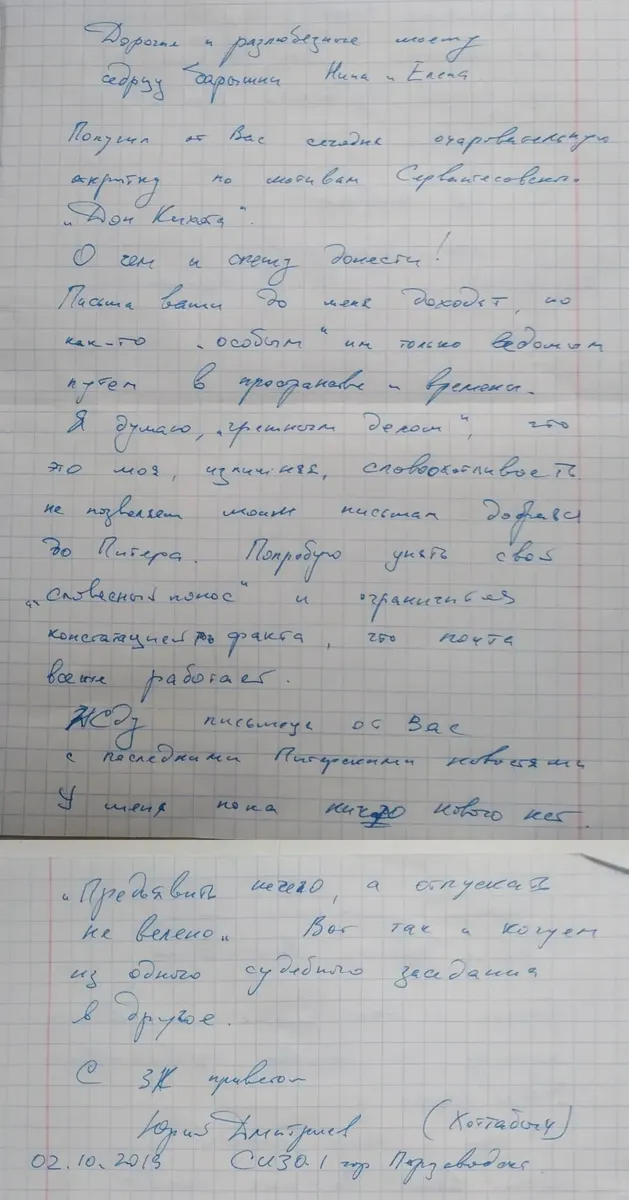 Дорогие и разлюбезные моему
сердцу барышни Нина и Елена
Получил от Вас сегодня очаровательную
открытку по мотивам Сервантесовского
„Дон Кихота".
О чем и спешу донести!
Письма ваши до меня доходят, но
как-то „особым" им только ведомым
путем в пространстве и времени.
Я думаю, „грешным делом", что
это моя, излишняя, словоохотливость
не позволяет моим письмам добраться
до Питера. Попробую унять свой
„словесный понос" и ограничиться
констатацией факта, что почта
все же работает.
Жду письмеца от Вас
с последними Питерскими новостями
У меня пока ничего нового нет.
„Предъявить нечего, а отпускать
не велено„ Вот так и кочуем
из одного судебного заседания
в другое.
С ЗК приветом
Юрий Дмитриев (Хоттабыч)
02.10.2019 СИЗО.1 гор Петрозаводска